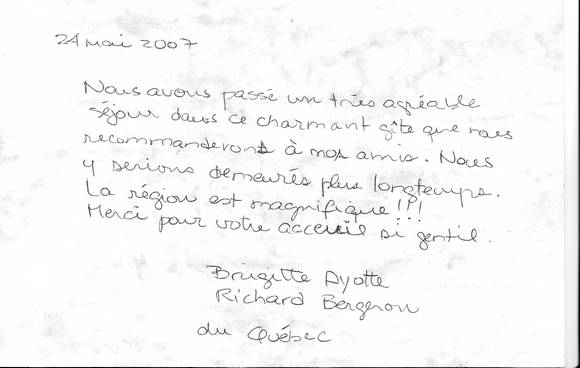 24 mai 2007
Nous avons passé un très agréable
séjour dans ce charmant gîte que nous
recommanderons à nos amis. Nous
y serions demeurés plus longtemps.
La région est magnifique!!!
Merci pour votre acceuil si gentil.
Brigitte Ayotte
Richard Bergeron
du Québec